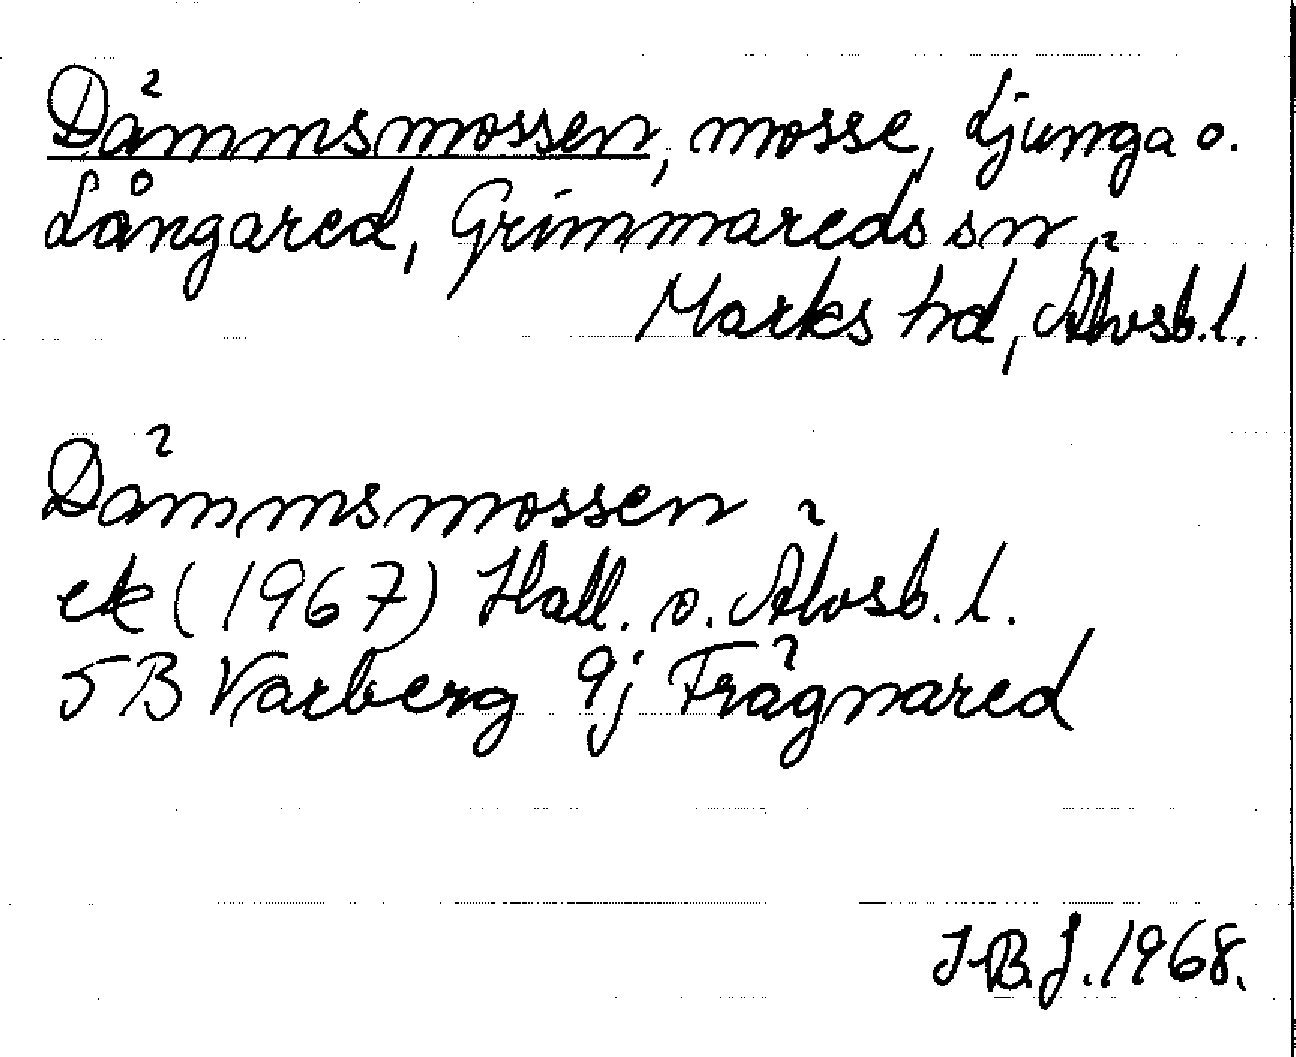 Dämmsmossen, mosse, Ljunga o.
Långared, Grimmareds sn,
Marks hd, Älvsb.l.
Dämmsmossen
ek (1967) Hall. o. Älvsb. l.
5B Varberg 9j Frägnared
J.B.J. 1968.